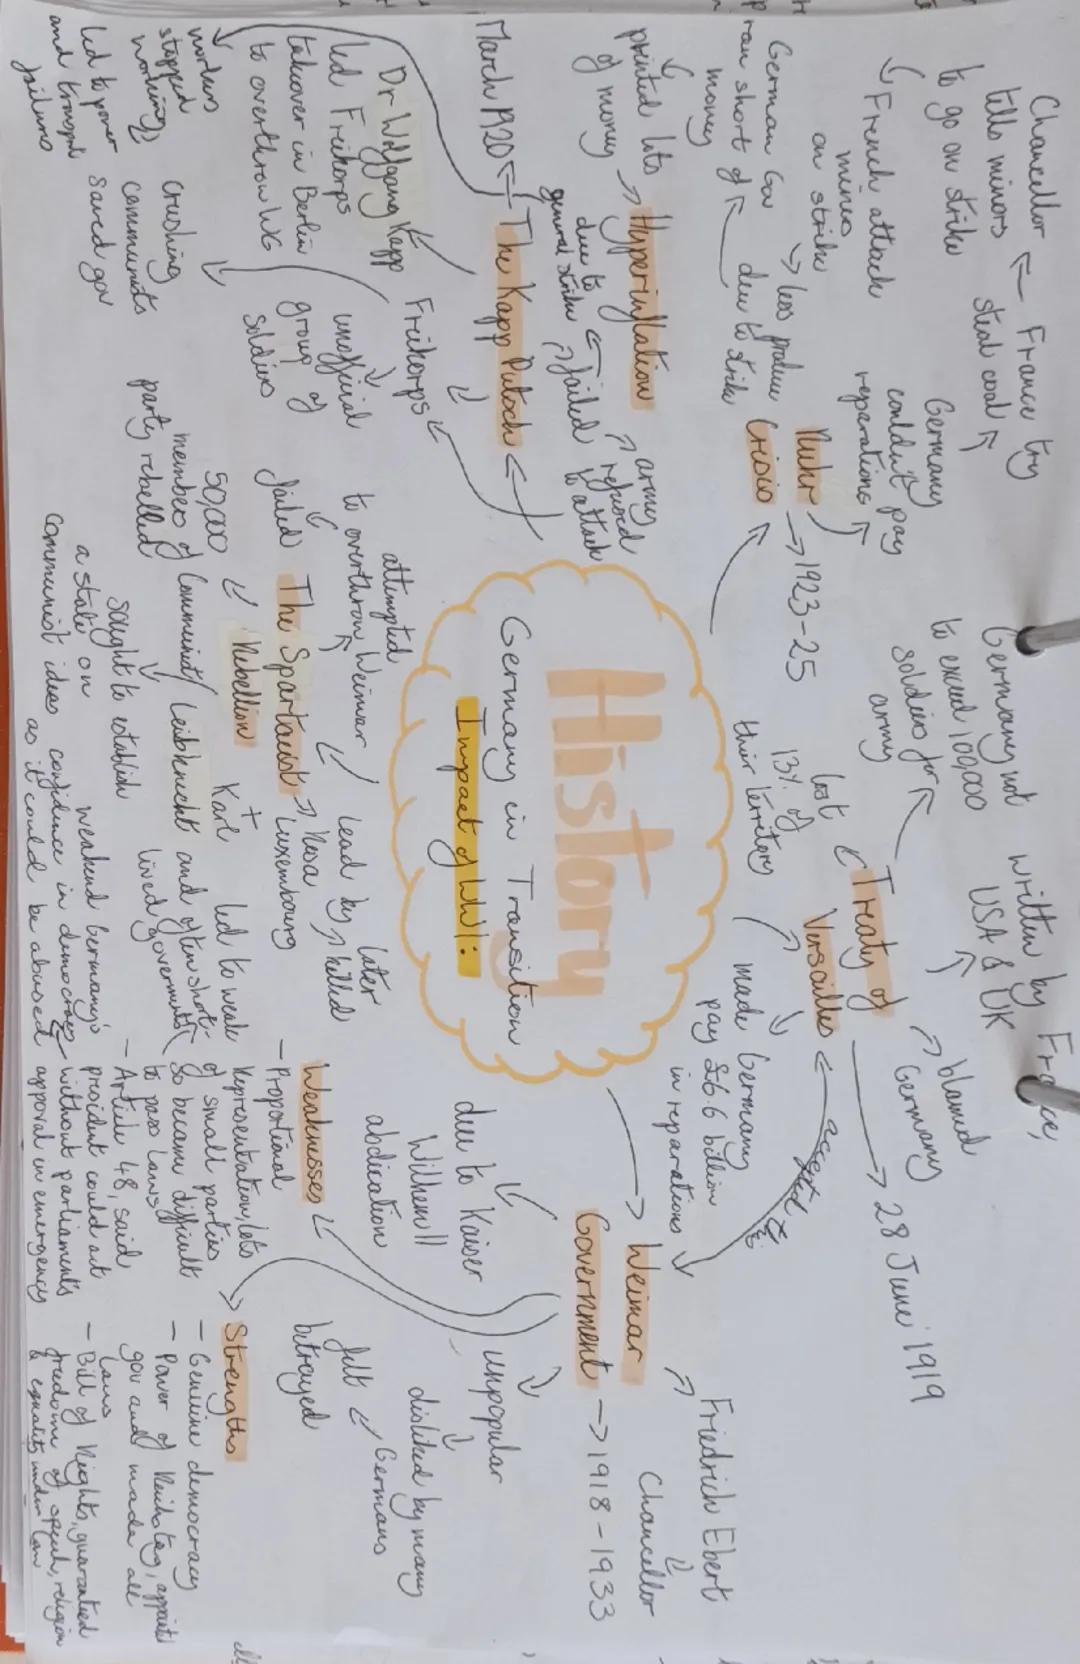 History
Germany in Transition
Impact of WW1:
Treaty of
Versailles
28 June 1919
blamed
Germany
written by France,
USA & UK
Germany not
to exceed 100,000
soldiers for
army
lost
13% of
their territory
made Germany
pay £6.6 billion
in reparations
Weimar
Government
1918-1933
Friedrich Ebert
Chancellor
unpopular
disliked by many
Germans
felt
betrayed
due to Kaiser
Wilhem II
abdication
Strengths
- Genuine democracy
- Power of Reichstag, appoint
gov and made all
laws
- Bill of Rights, guaranteed
freedom of speech, religion
& equality under law
Weaknesses
- Proportional
Representation, lots
of small parties
so became difficult
to pass laws
- Article 48, said
president could act
without parliament's
approval in emergency
led to weak
and often short-
lived governments
weakend Germany's
confidence in democracy
as it could be abused
The Spartacist
Rebellion
lead by
later
killed
Rosa
Luxembourg
+
Karl
Leibknecht
attempted
to overthrow Weimar
failed
50,000
members of Communist
party rebelled
sought to establish
a state on
communist ideas
The Kapp Putsch
March 1920
Dr Wolfgang Kapp
led Freikorps
takeover in Berlin
to overthrow WG
workers
stopped
working,
led to power
and transport
failures
Freikorps
unofficial
group of
soldiers
crushing
communists
saved gov
failed
army
refused
to attack
due to
general strike
Ruhr
Crisis
1923-25
Germany
couldn't pay
reparations
France try
steal coal
Chancellor
tells minors
to go on strike
French attack
mines
on strike
less produce
due to strike
German Gov
ran short of
money
printed lots
of money
Hyperinflation